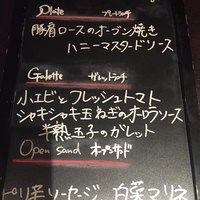 Plate プレートランチ
豚肩ロースのオーブン焼き
ハニーマスタードソース
Galette ガレットランチ
小エビとフレッシュトマト
シャキシャキ玉ねぎのオーロラソース
半熟玉子のガレット
Open sand オープンサンド
ソーセージ 白菜マリネ